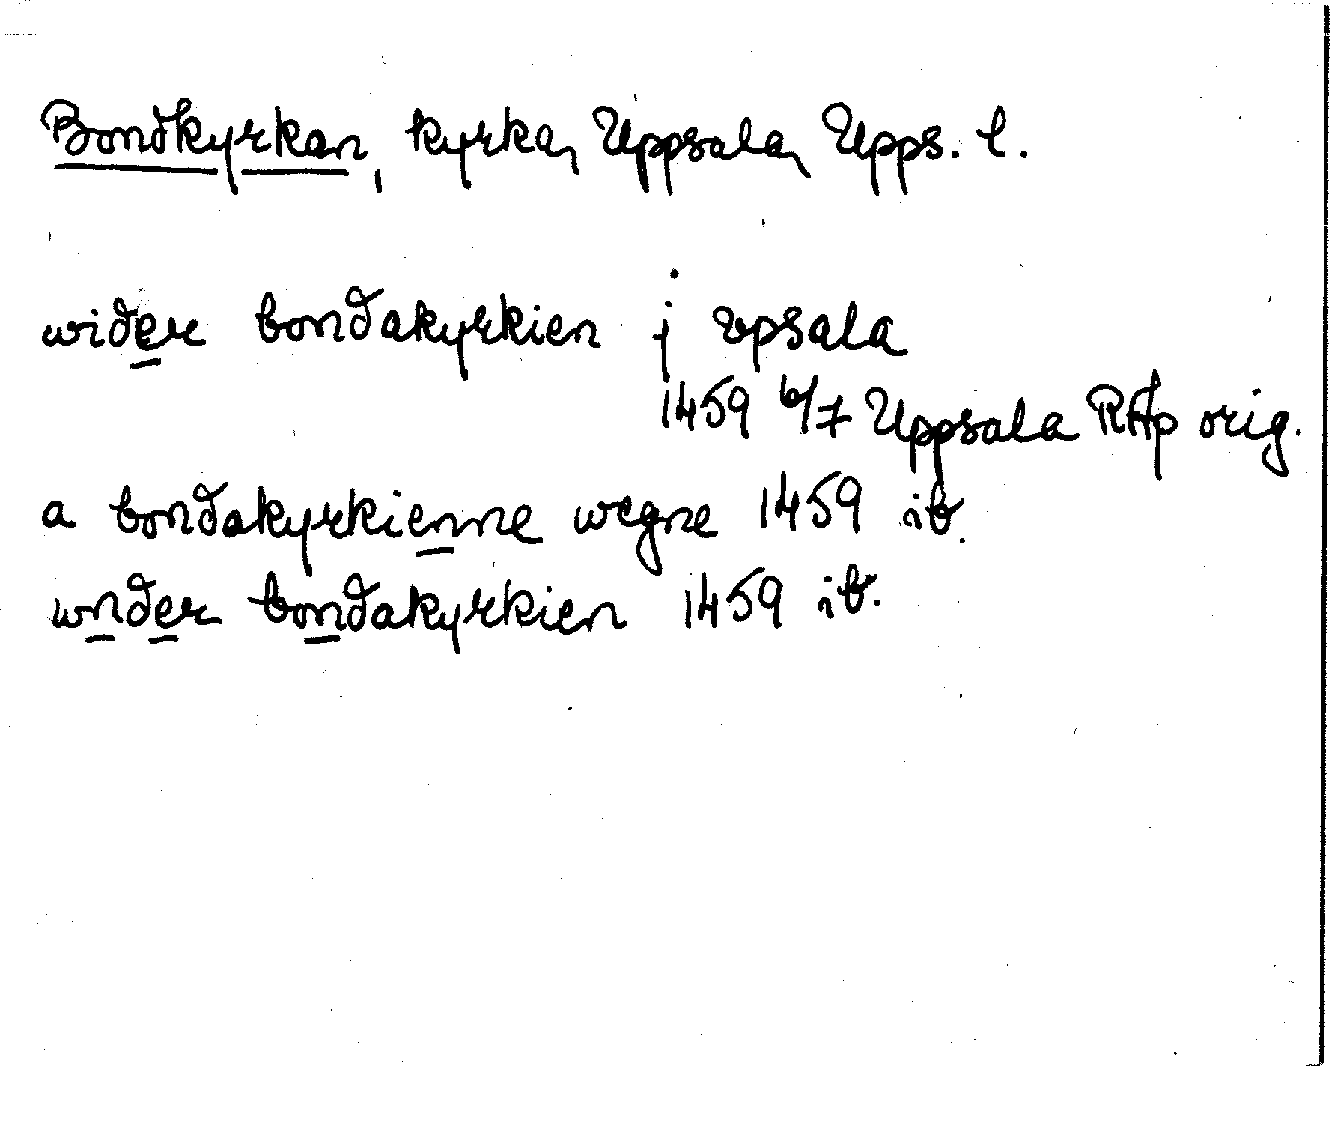 Bondkyrkan, kyrka, Uppsala, Upps. l.
wider bondakyrkien j vpsala
1459 6/7 Uppsala RAp orig.
a bondakyrkienne wegne 1459 ib.
wnder bondakyrkien 1459 ib.